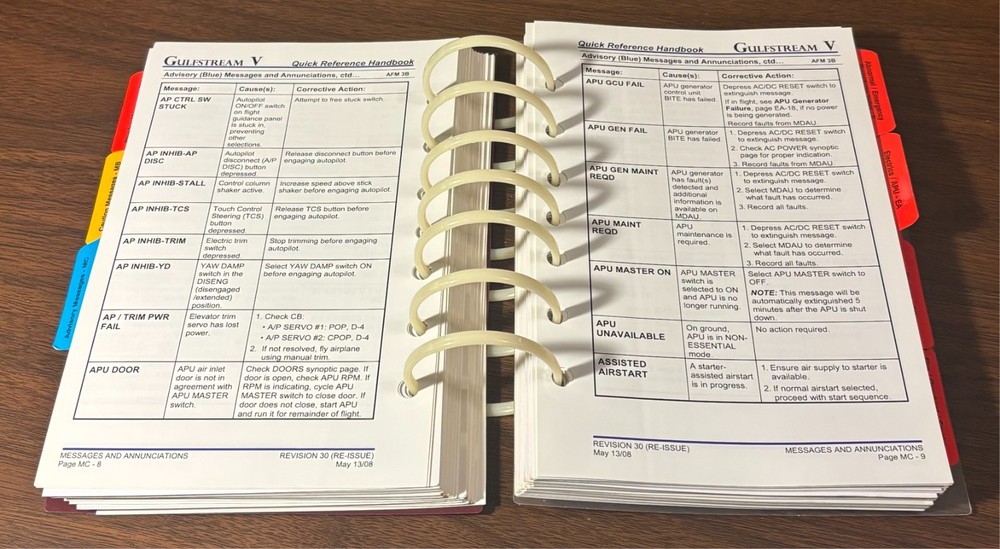 GULFSTREAM V
Quick Reference Handbook
Advisory (Blue) Messages and Annunciations, ctd…
AFM 3B
Message:
Cause(s):
Corrective Action:
AP CTRL SW
STUCK
Autopilot
ON/OFF switch
on flight
guidance panel
is stuck in,
preventing
other
selections.
Attempt to free stuck switch.
AP INHIB-AP
DISC
Autopilot
disconnect (A/P
DISC) button
depressed.
Release disconnect button before
engaging autopilot.
AP INHIB-STALL
Control column
shaker active.
Increase speed above stick
shaker before engaging autopilot.
AP INHIB-TCS
Touch Control
Steering (TCS)
button
depressed.
Release TCS button before
engaging autopilot.
AP INHIB-TRIM
Electric trim
switch
depressed.
Stop trimming before engaging
autopilot.
AP INHIB-YD
YAW DAMP
switch in the
DISENG
(disengaged
/extended)
position.
Select YAW DAMP switch ON
before engaging autopilot.
AP / TRIM PWR
FAIL
Elevator trim
servo has lost
power.
1. Check CB:
• A/P SERVO #1: POP, D-4
• A/P SERVO #2: CPOP, D-4
2. If not resolved, fly airplane
using manual trim.
APU DOOR
APU air inlet
door is not in
agreement with
APU MASTER
switch.
Check DOORS synoptic page. If
door is open, check APU RPM. If
RPM is indicating, cycle APU
MASTER switch to close door. If
door does not close, start APU
and run it for remainder of flight.
MESSAGES AND ANNUNCIATIONS
Page MC - 8
REVISION 30 (RE-ISSUE)
May 13/08
Advisory Messages - MC
Quick Reference Handbook
GULFSTREAM V
Advisory (Blue) Messages and Annunciations, ctd…
AFM 3B
Message:
Cause(s):
Corrective Action:
APU GCU FAIL
APU generator
control unit
BITE has failed.
Depress AC/DC RESET switch to
extinguish message.
If in flight, see APU Generator
Failure, page EA-18, if no power
is being generated.
Record faults from MDAU.
APU GEN FAIL
APU generator
BITE has failed.
1. Depress AC/DC RESET switch
to extinguish message.
2. Check AC POWER synoptic
page for proper indication.
3. Record faults from MDAU.
APU GEN MAINT
REQD
APU generator
has fault(s)
detected and
additional
information is
available on
MDAU.
1. Depress AC/DC RESET switch
to extinguish message.
2. Select MDAU to determine
what fault has occurred.
3. Record all faults.
APU MAINT
REQD
APU
maintenance is
required.
1. Depress AC/DC RESET switch
to extinguish message.
2. Select MDAU to determine
what fault has occurred.
3. Record all faults.
APU MASTER ON
APU MASTER
switch is
selected to ON
and APU is no
longer running.
Select APU MASTER switch to
OFF.
NOTE: This message will be
automatically extinguished 5
minutes after the APU is shut
down.
APU
UNAVAILABLE
On ground,
APU is in NON-
ESSENTIAL
mode.
No action required.
ASSISTED
AIRSTART
A starter-
assisted airstart
is in progress.
1. Ensure air supply to starter is
available.
2. If normal airstart selected,
proceed with start sequence.
REVISION 30 (RE-ISSUE)
May 13/08
MESSAGES AND ANNUNCIATIONS
Page MC - 9